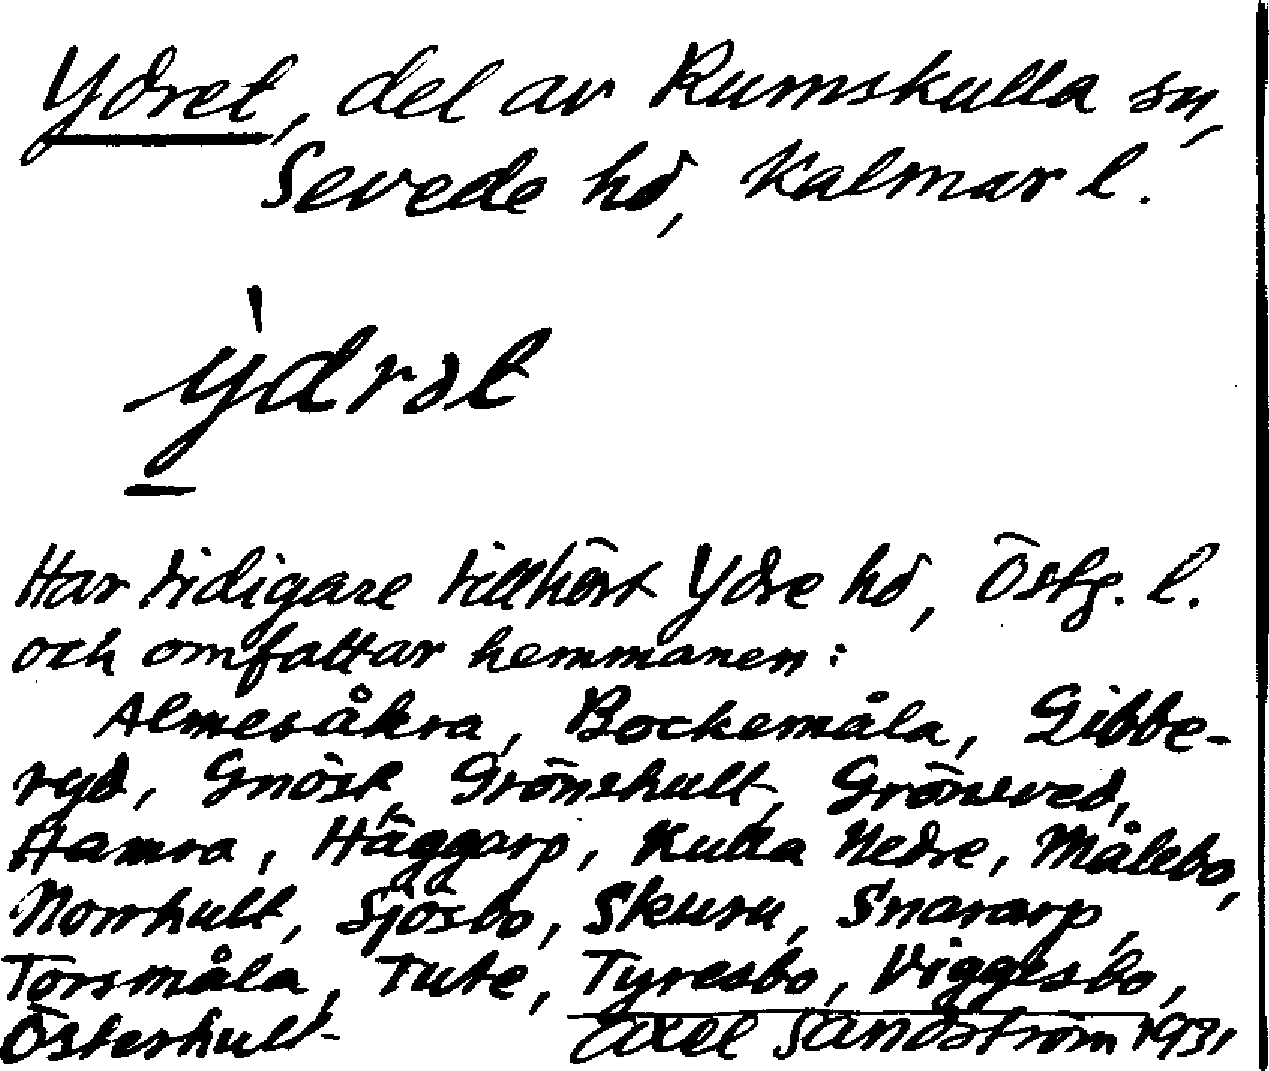 Ydret, del av Rumskulla sn,
Sevede hd, Kalmar l.
ỳdrət
Har tidigare tillhört Ydre hd, Östg. l.
och omfattar hemmanen:
Almesåkra, Bockemåla, Gibbe-
ryd, Gnöst, Grönshult, Grönsved,
Hamra, Häggarp, Kulla Nedre, Målebo,
Norrhult, Sjösbo, Skuru, Snararp,
Torsmåla, Tute, Tyresbo, Viggesbo,
Österhult
Axel Sandström 1931